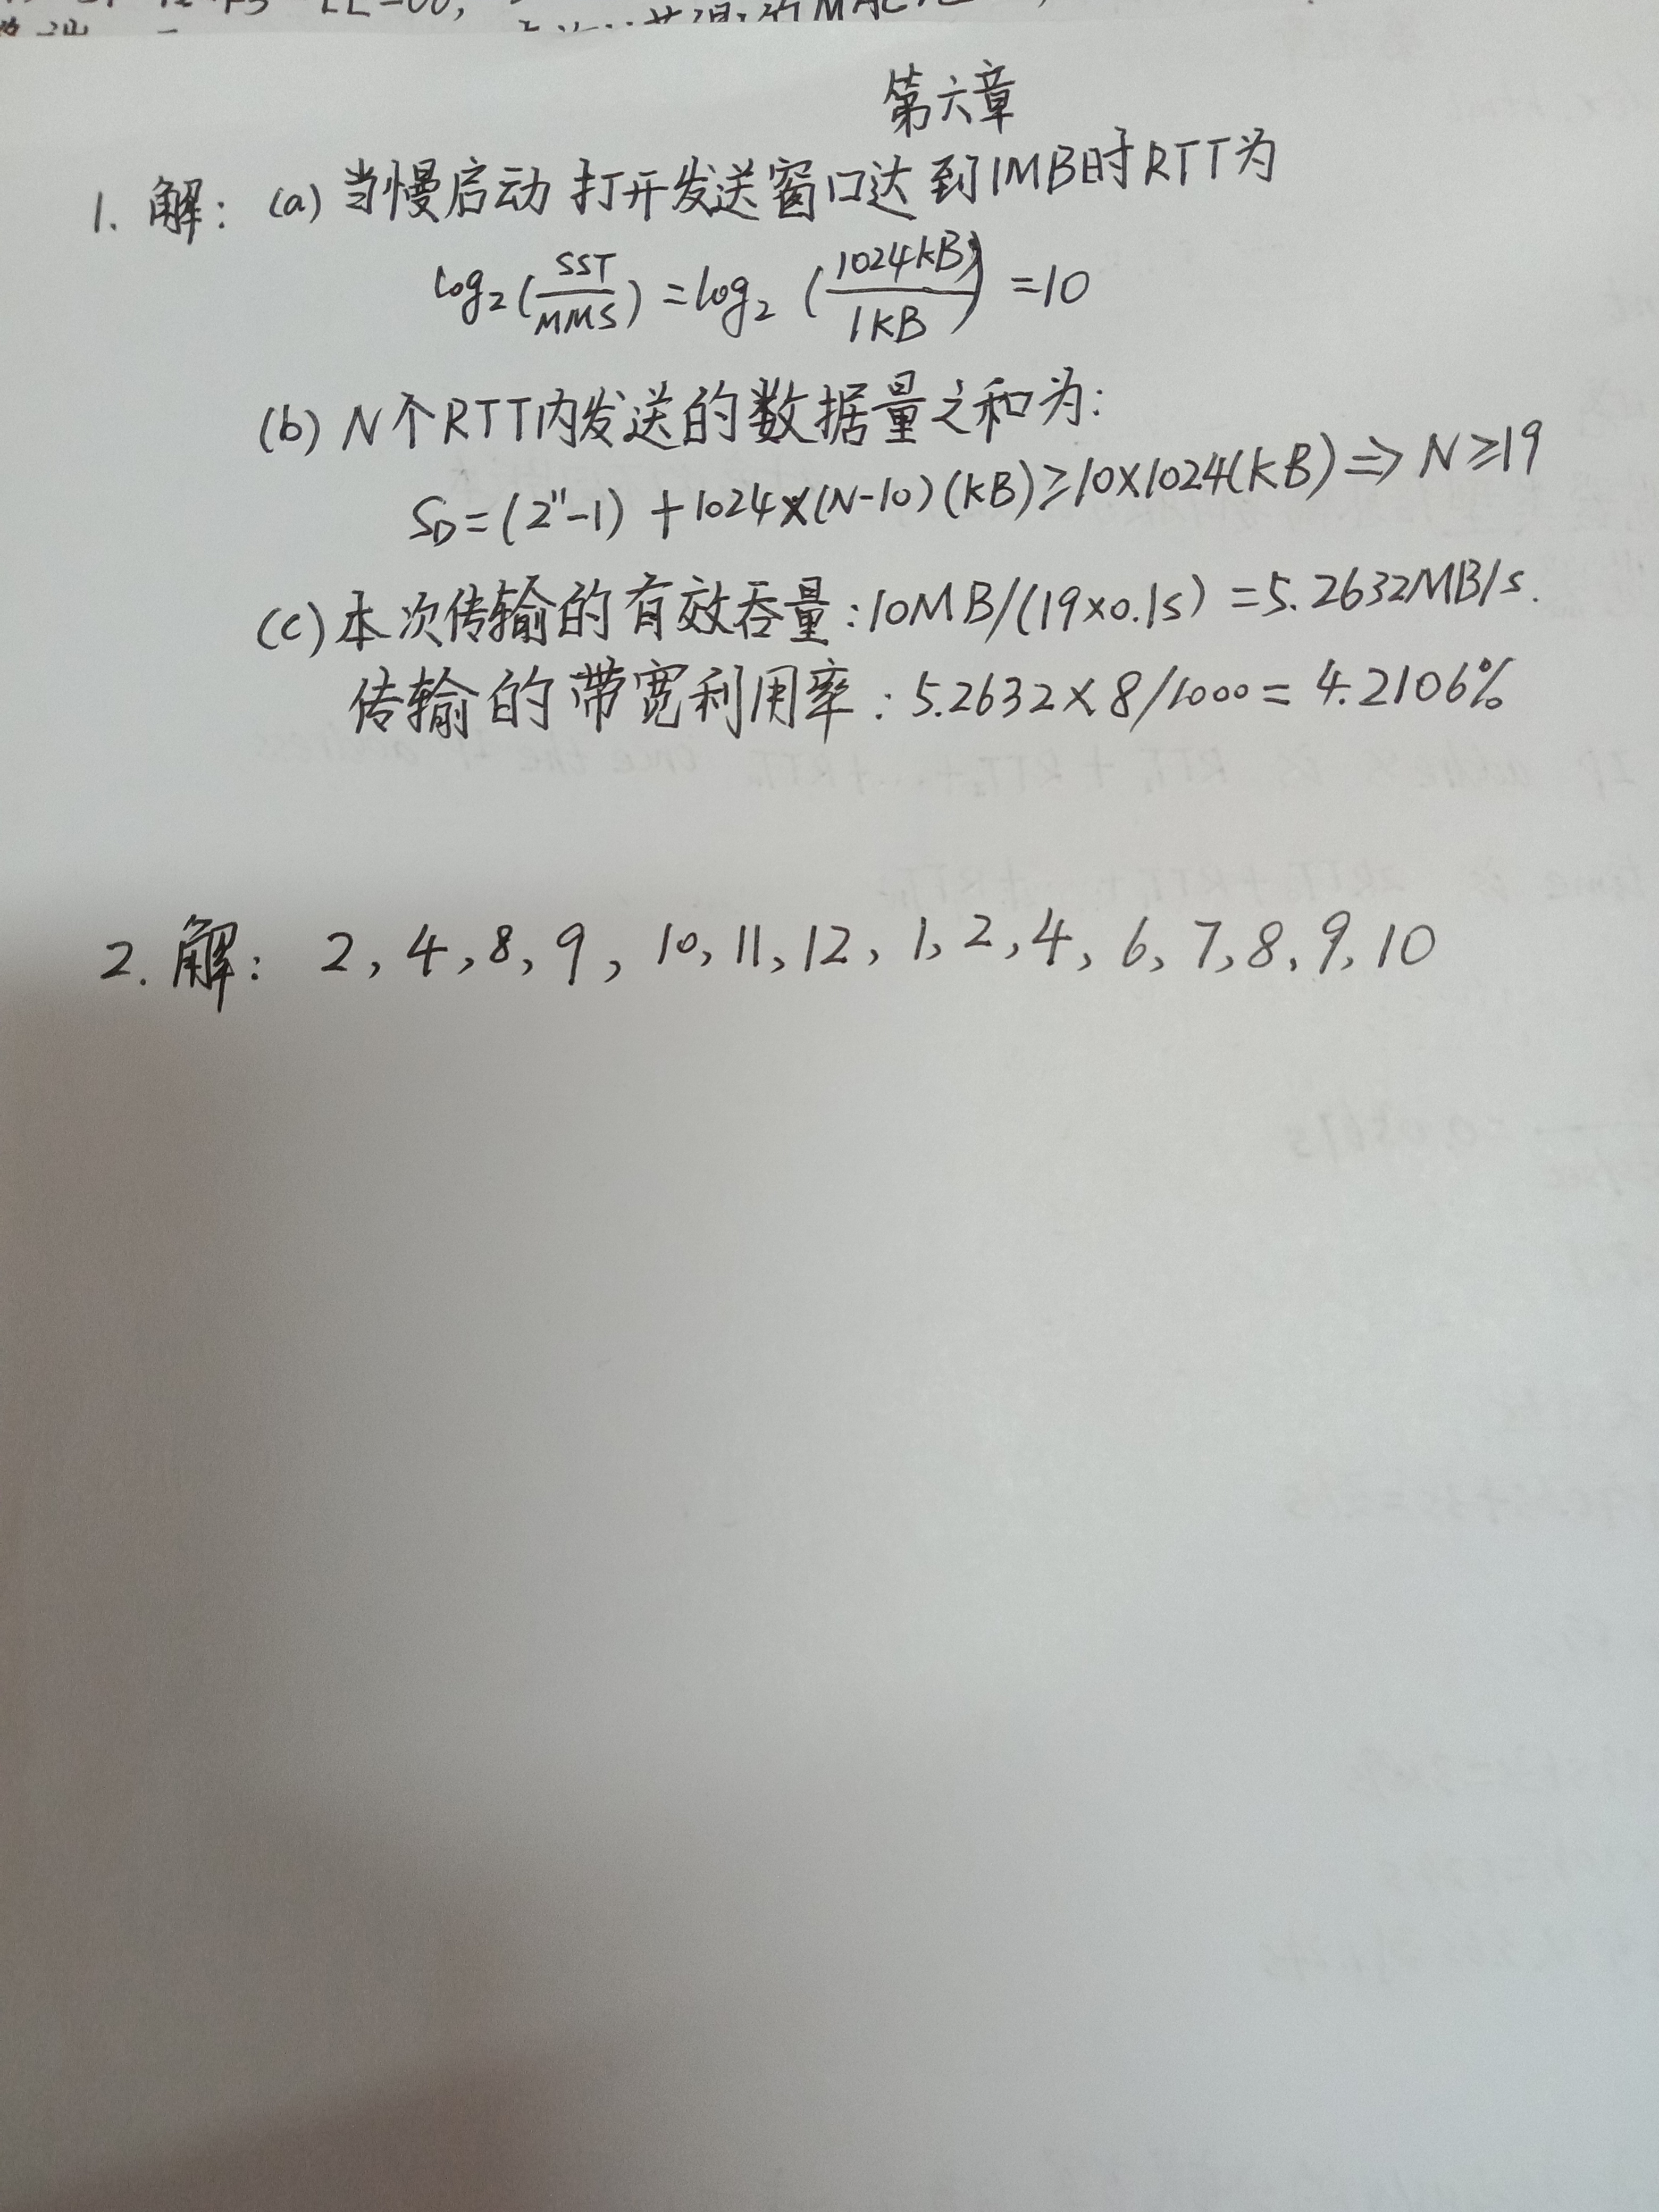 第六章
1. 解: (a) 当慢启动打开发送窗口达到1MB时RTT为
log₂(SST/MMS) = log₂(1024kB/1kB) = 10
(b) N个RTT内发送的数据量之和为:
S_D = (2¹¹-1) + 1024×(N-10)(kB) ≥ 10×1024(kB) ⇒ N≥19
(c) 本次传输的有效吞量: 10MB/(19×0.1s) = 5.2632MB/s.
传输的带宽利用率: 5.2632×8/1000 = 4.2106%
2. 解: 2, 4, 8, 9, 10, 11, 12, 1, 2, 4, 6, 7, 8, 9, 10